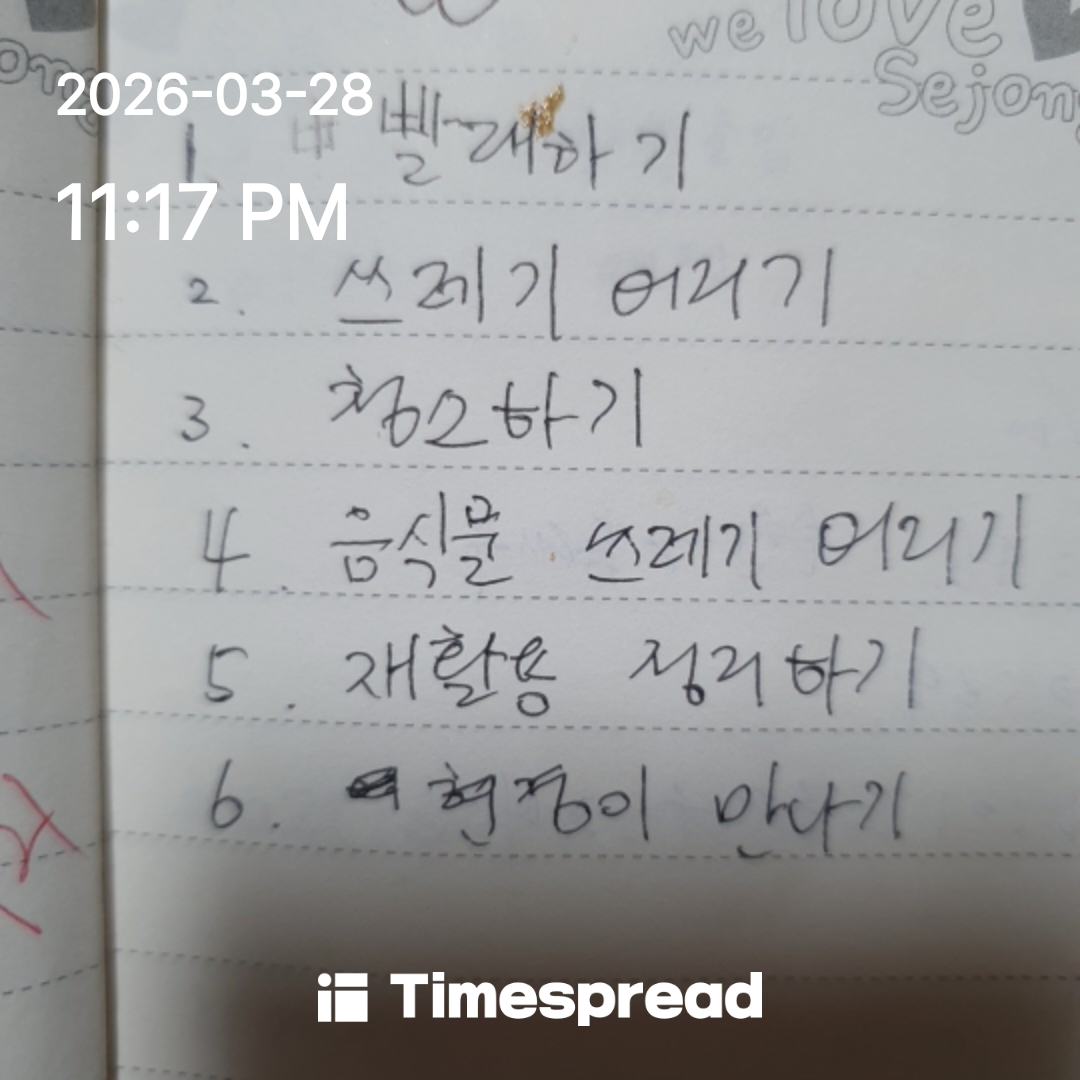 we love
Sejong
2026-03-28
1. 빨래하기
11:17 PM
2. 쓰레기 버리기
3. 청소하기
4. 음식물 쓰레기 버리기
5. 재활용 정리하기
6. 현정이 만나기
Timespread